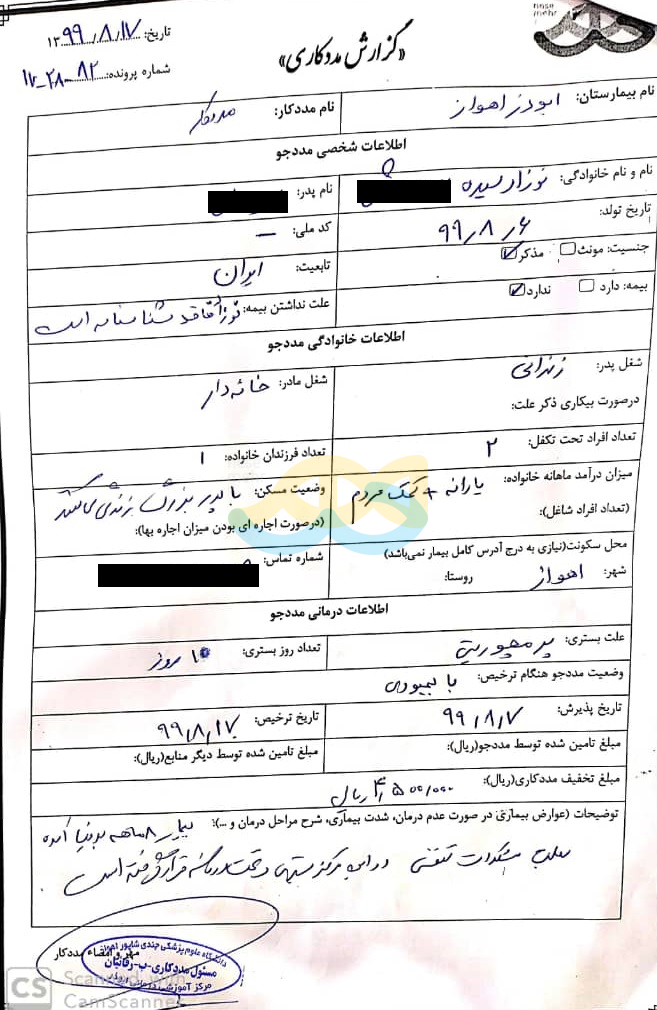 تاریخ: ۱۳۹۹/۸/۱۷
شماره پرونده: ۱۷-۲۸-۸۲
«گزارش مددکاری»
mehr
نام بیمارستان: ابوذر اهواز
نام مددکار: مددکار
اطلاعات شخصی مددجو
نام و نام خانوادگی: نوزاد سیده
نام پدر:
تاریخ تولد: ۹۹/۸/۶
کد ملی: –
جنسیت: مونث مذکر
تابعیت: ایران
بیمه: دارد ندارد
علت نداشتن بیمه: نوزاد فاقد شناسنامه است
اطلاعات خانوادگی مددجو
شغل پدر: زندانی
شغل مادر: خانه دار
درصورت بیکاری ذکر علت:
تعداد افراد تحت تکفل: ۲
تعداد فرزندان خانواده: ۱
میزان درآمد ماهانه خانواده: یارانه + کمک مردم
وضعیت مسکن: با پدر بزرگ زندگی می کند
(تعداد افراد شاغل):
(درصورت اجاره ای بودن میزان اجاره بها):
محل سکونت(نیازی به درج آدرس کامل بیمار نمی‌باشد)
شماره تماس:
شهر: اهواز روستا:
اطلاعات درمانی مددجو
علت بستری: پره مچوریتی
تعداد روز بستری: ۱۰ روز
وضعیت مددجو هنگام ترخیص: با بهبودی
تاریخ پذیرش: ۹۹/۸/۷
تاریخ ترخیص: ۹۹/۸/۱۷
مبلغ تامین شده توسط مددجو(ریال):
مبلغ تامین شده توسط دیگر منابع(ریال):
مبلغ تخفیف مددکاری(ریال): ۴/۵۰۰/۰۰۰ ریال
توضیحات (عوارض بیماری در صورت عدم درمان، شدت بیماری، شرح مراحل درمان و ...): بیمار ۸ ماهه بدنیا آمده
مشکلات تنفسی در این مرکز بستری و تحت درمان قرار گرفته است
مهر و امضاء مددکار
دانشگاه علوم پزشکی جندی شاپور اهواز
مسئول مددکاری-ب-رقانیان
CS Scanned with
CamScanner